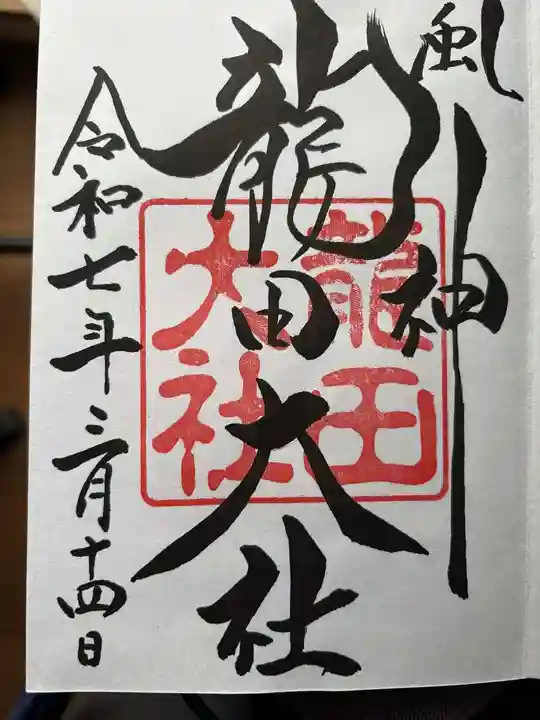 風神
龍田大社
龍田
大社
令和七年三月十四日